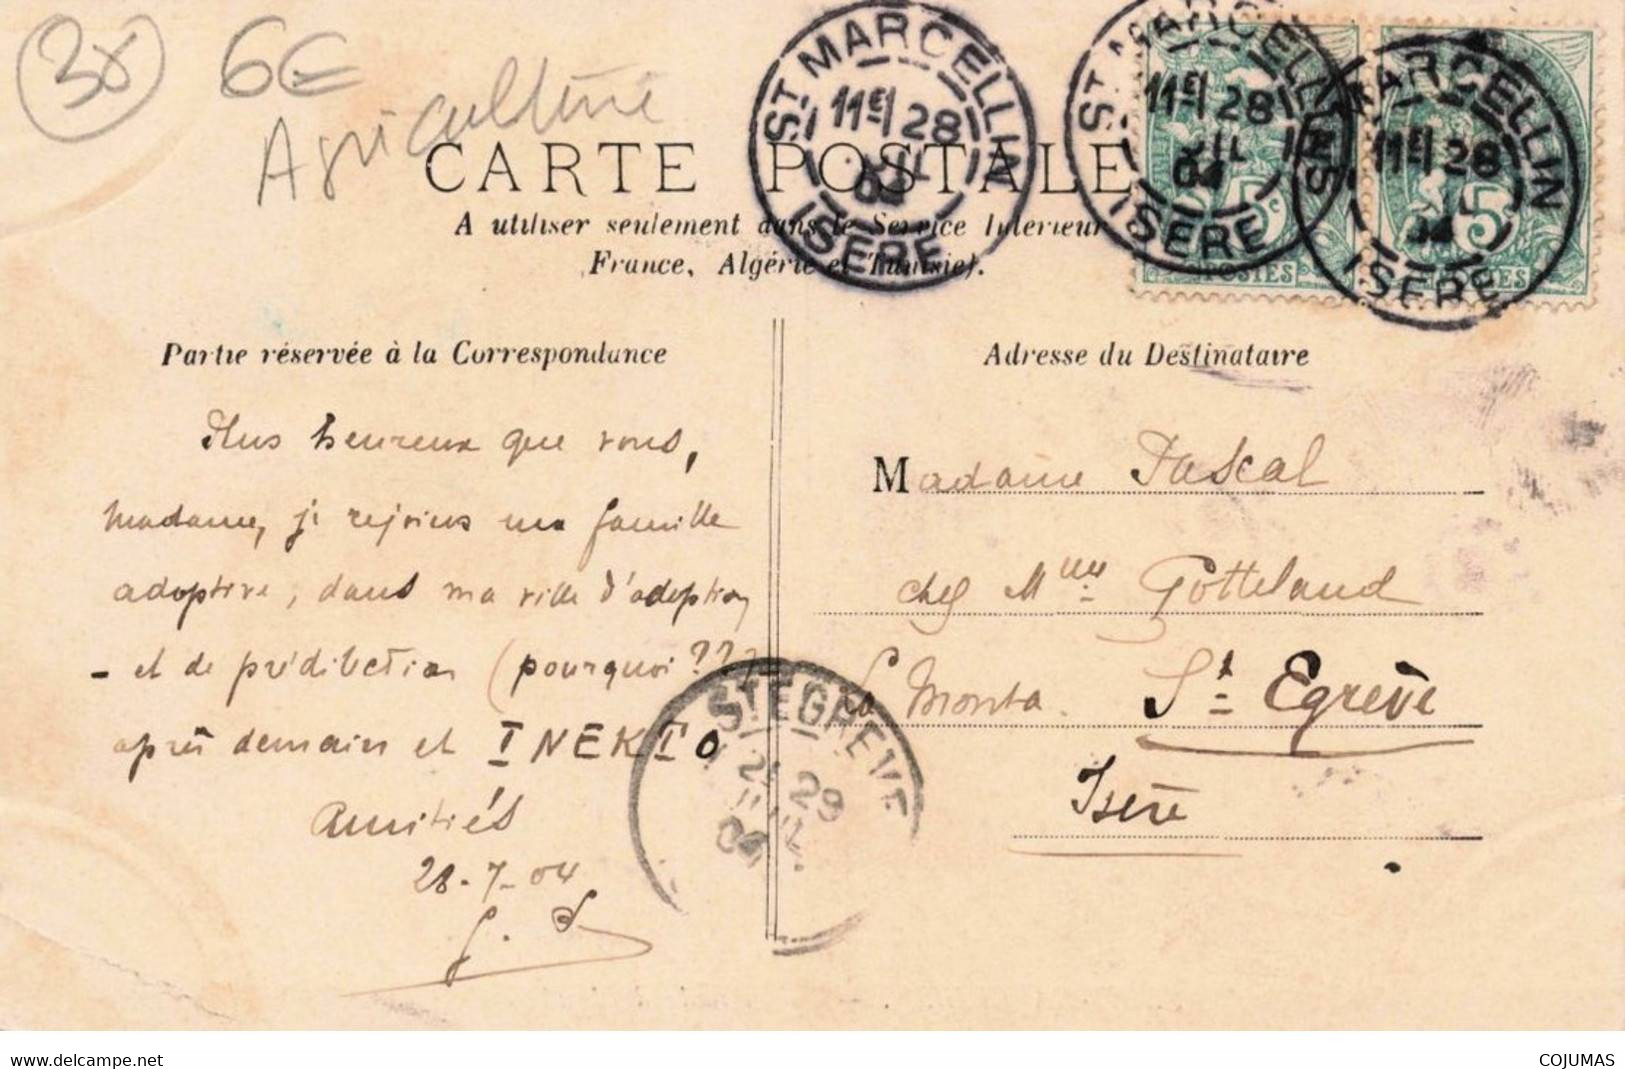 38
6€
Agriculture
CARTE POSTALE
A utiliser seulement dans le Service Intérieur
France, Algérie et Tunisie).
ST MARCELLIN
11E 28
JUIL
04
ISERE
ST MARCELLIN
11E 28
JUIL
04
ISERE
5c
POSTES
ST MARCELLIN
11E 28
04
ISERE
5
POSTES
Partie réservée à la Correspondance
Plus heureux que vous,
madame, je rejoins ma famille
adoptive, dans ma ville d'adoption
- et de prédilection (pourquoi ???)
après demain et INEKTO
Amitiés
28-7-04
Adresse du Destinataire
Madame Pascal
chez Mme Gotteland
La Monta. St Egrève
Isère
ST EGREVE
29
04
www.delcampe.net
COJUMAS